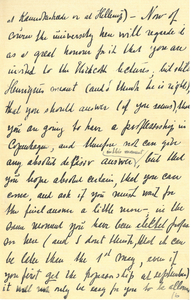 at Ramersdorf or at Hellerup) – Now of
course the university here will regard it
as a great honour for it that you are
invited to the Hitchcock lectures, but still
Henriques meant (and I think he is right)
that you should answer (if you answer) that
you are going to have a professorship in
Copenhagen, and therefore not can give
any absolut definitiv answer, but that
you hope absolut certain that you can
come, and ask if you must wait for
the final answer a little more – in the
same moment you have been
here (and I don't think, that it can
be later than the 1st of May, even if
you first get the professorship at september)
it will only be easy for you to be allow